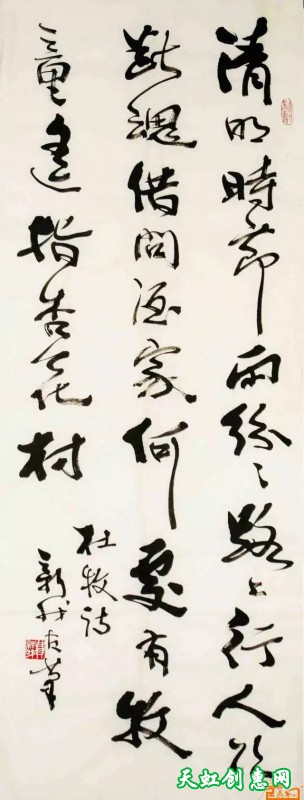 清明時節雨紛〻路上行人欲
断魂借問酒家何處有牧
童遥指杏花村
杜牧诗
新
天虹创意网